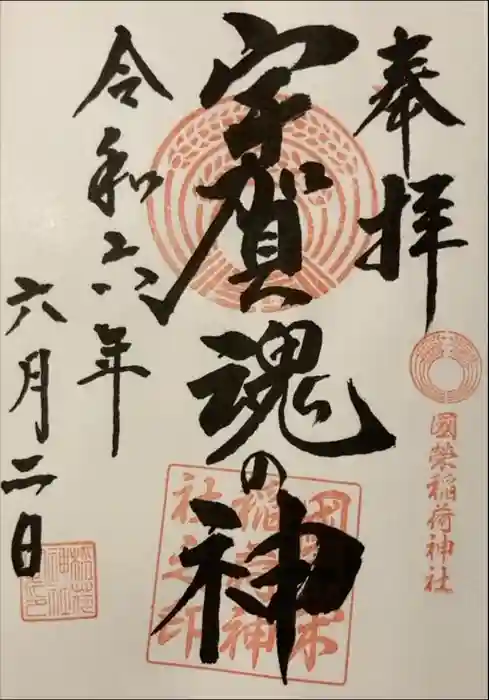 奉拝
國榮稲荷神社
宇賀魂の神
國榮稲荷神社之印
令和六年
六月二日